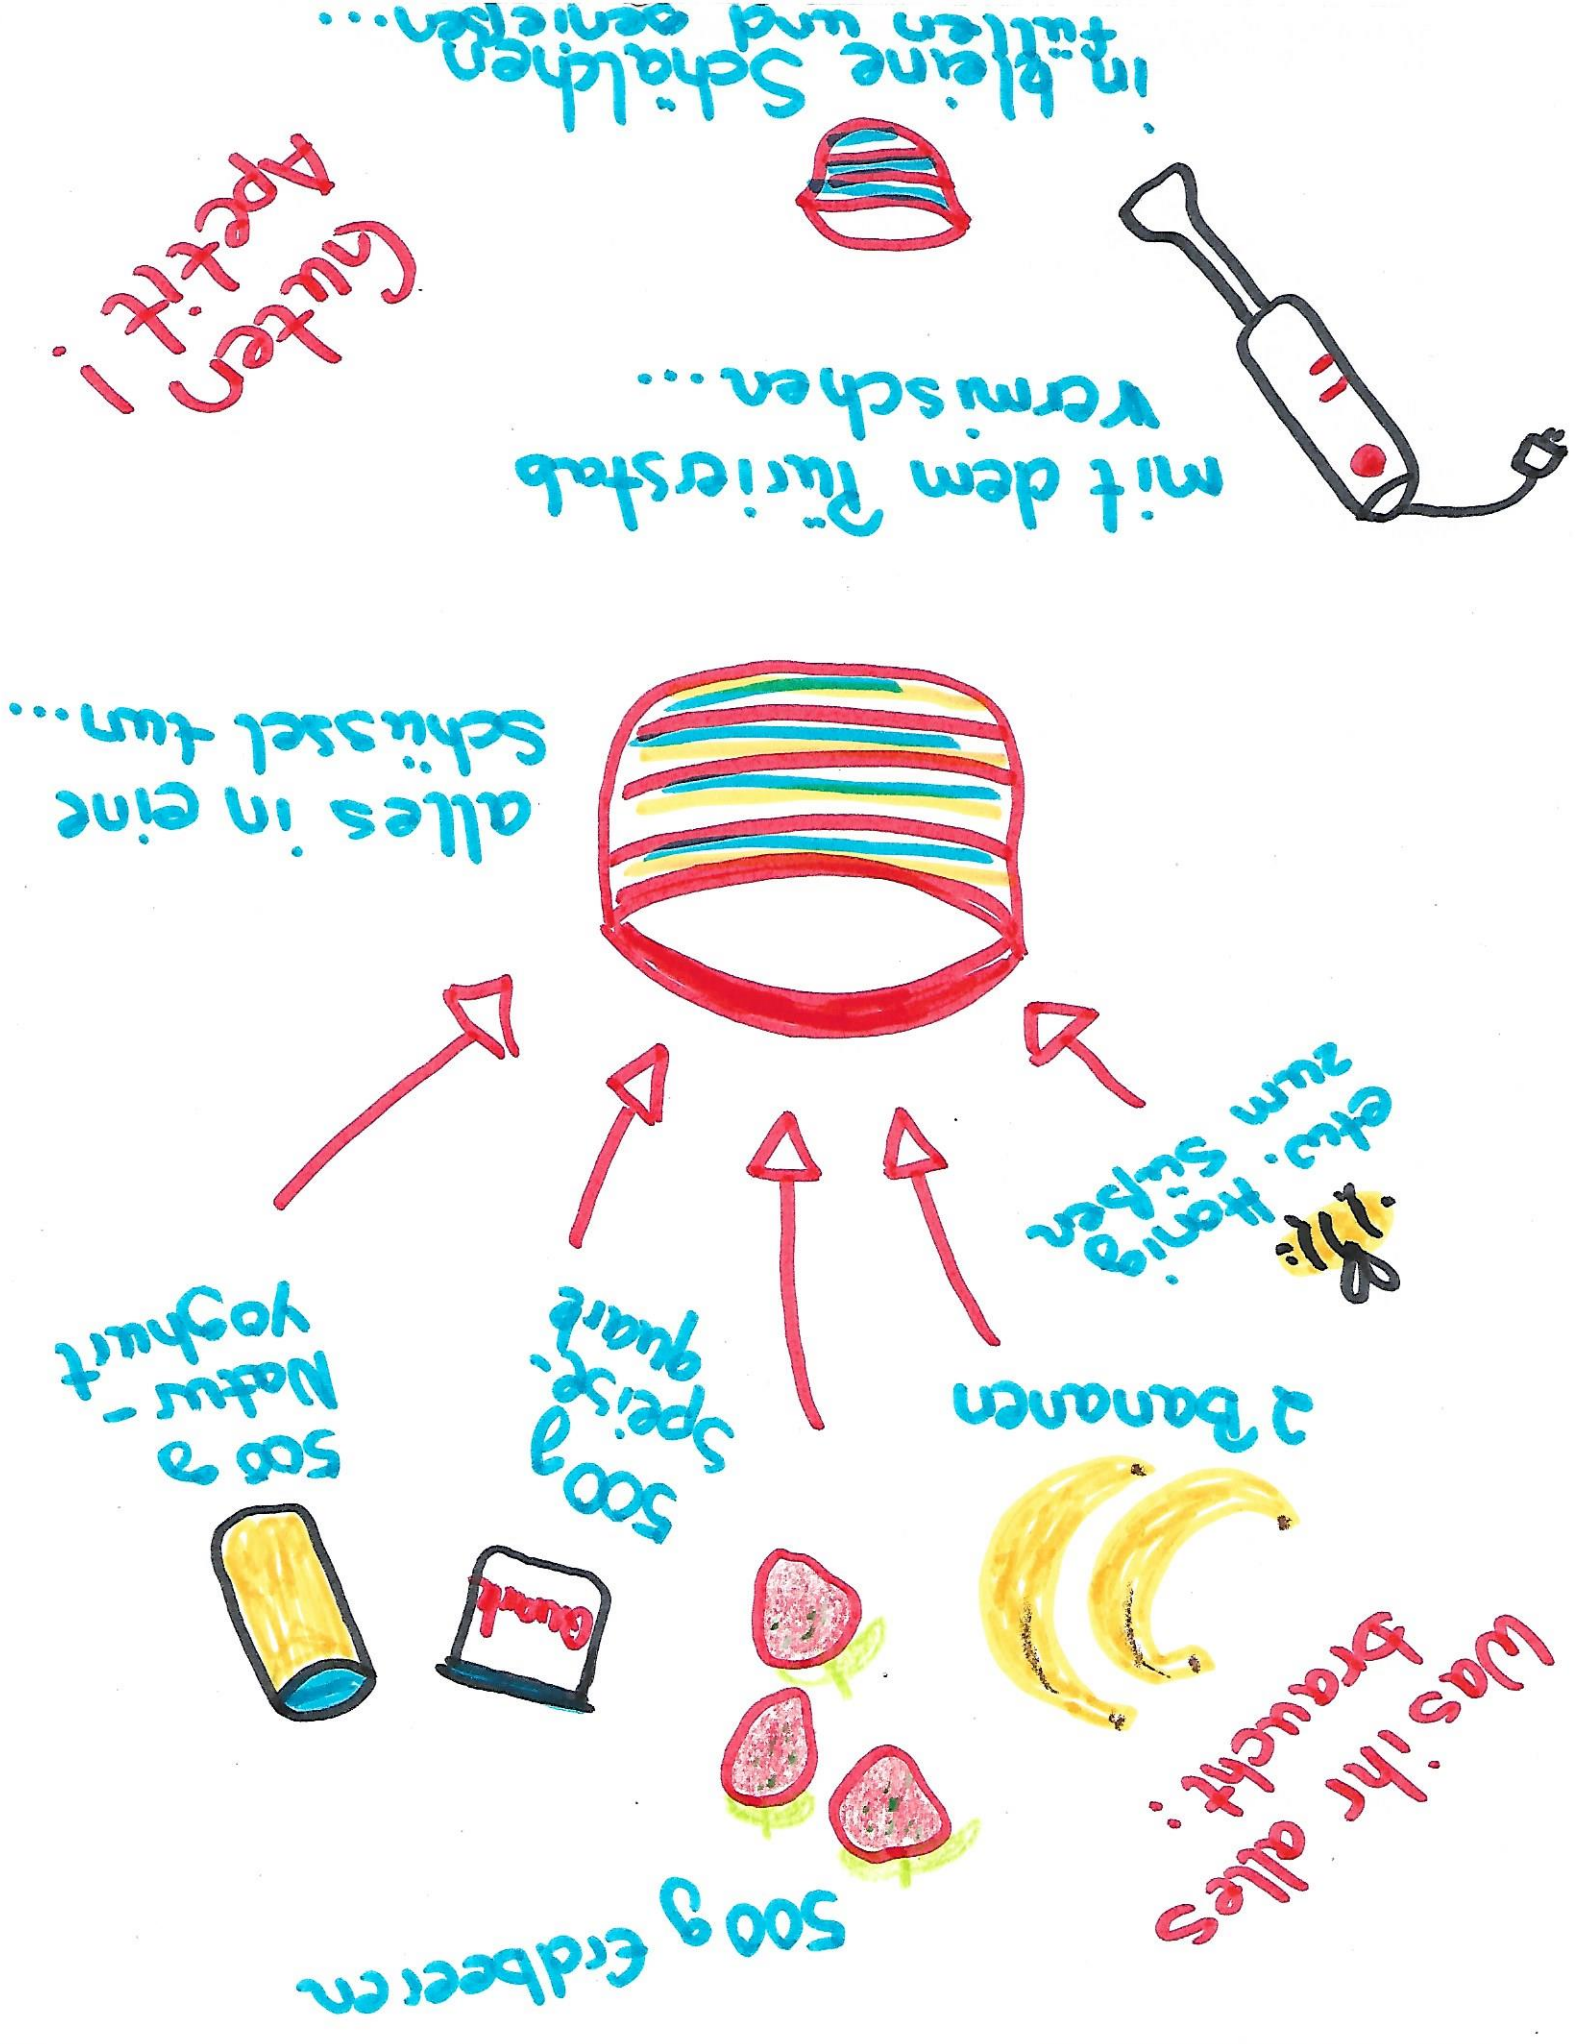 Was ihr alles
braucht:
500 g Erdbeeren
2 Bananen
Quark
500 g
Speise-
quark
500 g
Natur-
yoghurt
etw. Honig
zum Süßen
alles in eine
Schüssel tun...
mit dem Pürierstab
vermischen...
in kleine Schälchen
füllen und genießen...
Guten
Apetitt!